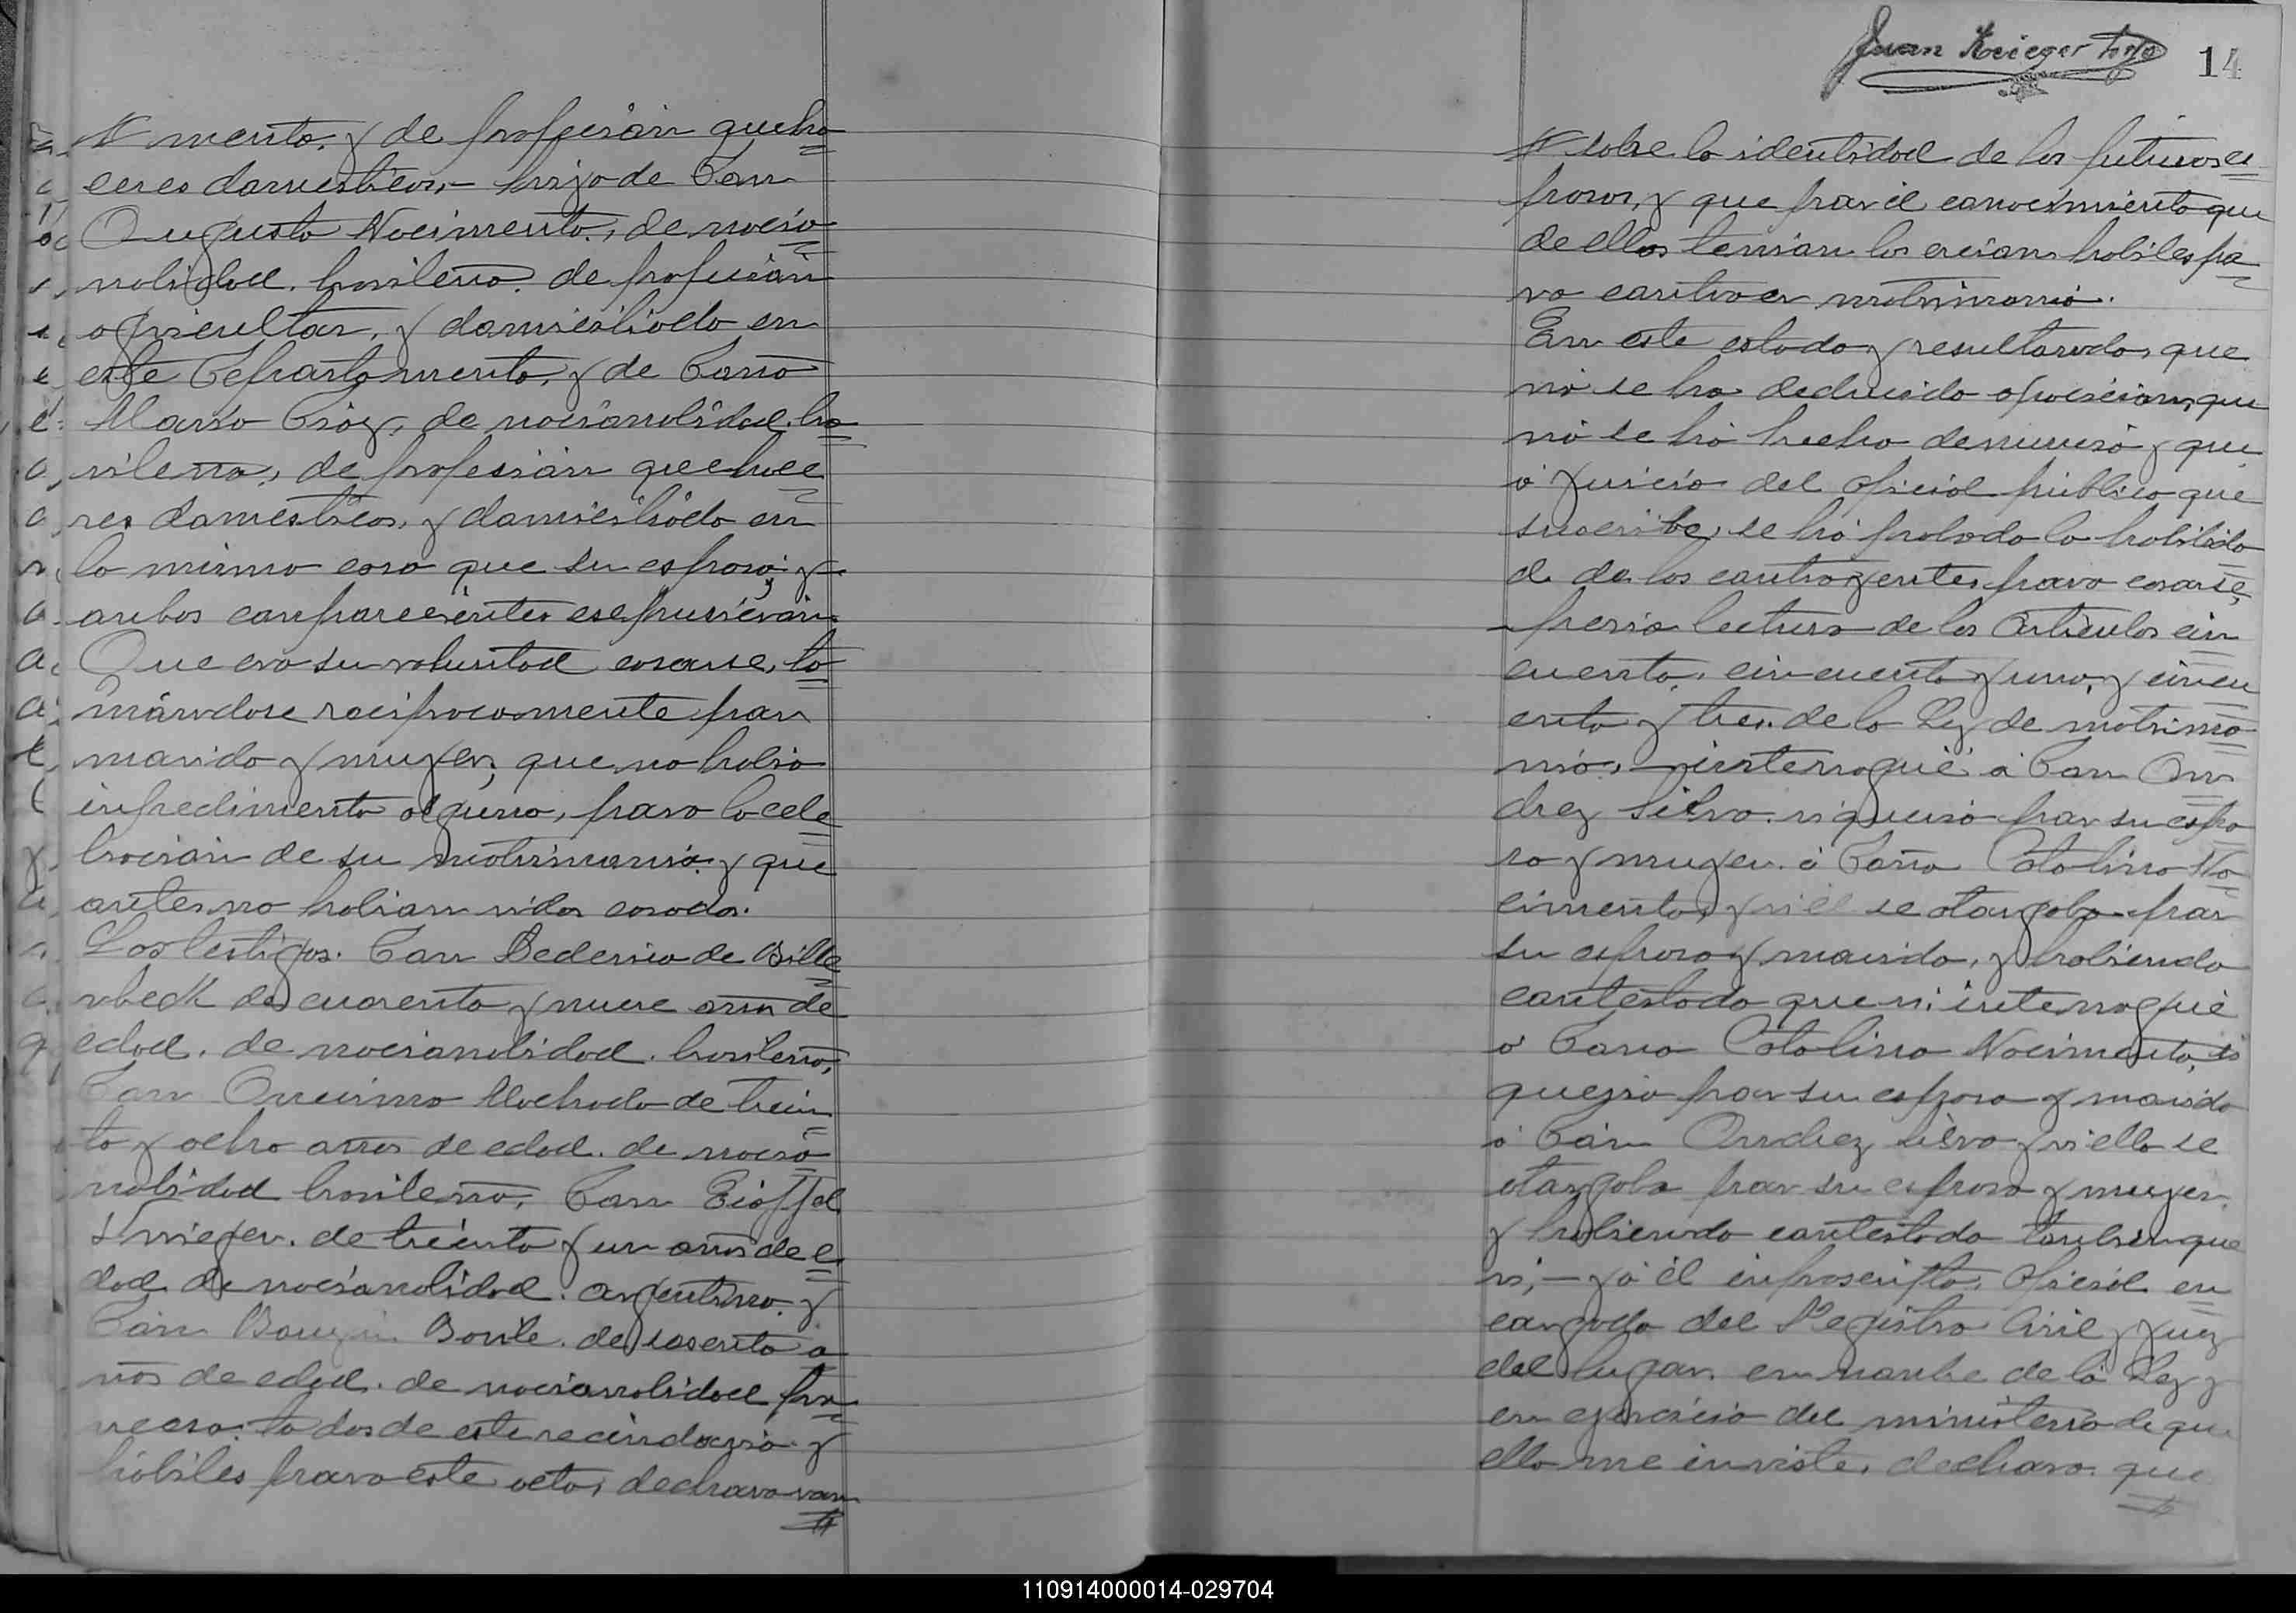 mento, y de profesión queha
ceres domesticos,- hija de Don
Augusto Nocimento, de nacio
nalidad, brasilera, de profesión
agricultor, y domiciliado en
este Departamento, y de Doña
María Diaz, de nacionalidad bra
silera, de profesión quehace
res domesticos, y domiciliada en
la misma casa que su esposo; y
ambos comparecientes espusieron
Que era su voluntad casarse, to
mándose reciprocamente por
marido y muyer, que no habia
impedimento alguno, para la cele
bracion de su matrimonio y que
antes no habian sidos casados.
Los testigos. Don Federico de Bille
rbeck de cuarenta y nueve años de
edad. de nacionalidad. brasilera,
Don Machado de trein
ta y ocho años de edad. de nacio
nalidad brasilera, Don
de treinta y un años de e
dad de nacionalidad. argentina. y
Don de sesenta a
ños de edad. de nacionalidad fra
ncesa. todos de este vecindario y
hábiles para este acto, declararon
Juan Krieger 14
sobre la identidad de los futuros es
posos, y que por el conocimiento que
de ellos tenian los creian habiles pa
ra contraer matrimonio.
En este estado y resultando, que
nó se ha deducido oposicion, que
nó se há hecho denuncia y que
á yuicio del oficial público que
suscribe, se há probado la habilida
d de los contrayentes para casarse,
previa lectura de los Articulos cin
cuenta, cincuenta y uno, y cincu
enta y tres. de la Ley de matrimo
nio, - interrogué á Don An
drez Silva. si queria por su espo
sa y muyer. á Doña Catalina No
cimento, y si él se otorgaba por
su esposo y marido, y habiendo
contestado que si, interrogué
á Doña Catalina Nocimento, si
queria por su esposo y marido
á Don Andrez Silva y si ella se
otorgaba por su esposa y muyer,
y habiendo contestado tambien que
si, - yo él infrascripto, Oficial en
cargado del Registro Civil y Juez
del lugar, en nombre de la Ley y
en ejercicio del ministerio de que
ella me inviste, declaro que
110914000014-029704